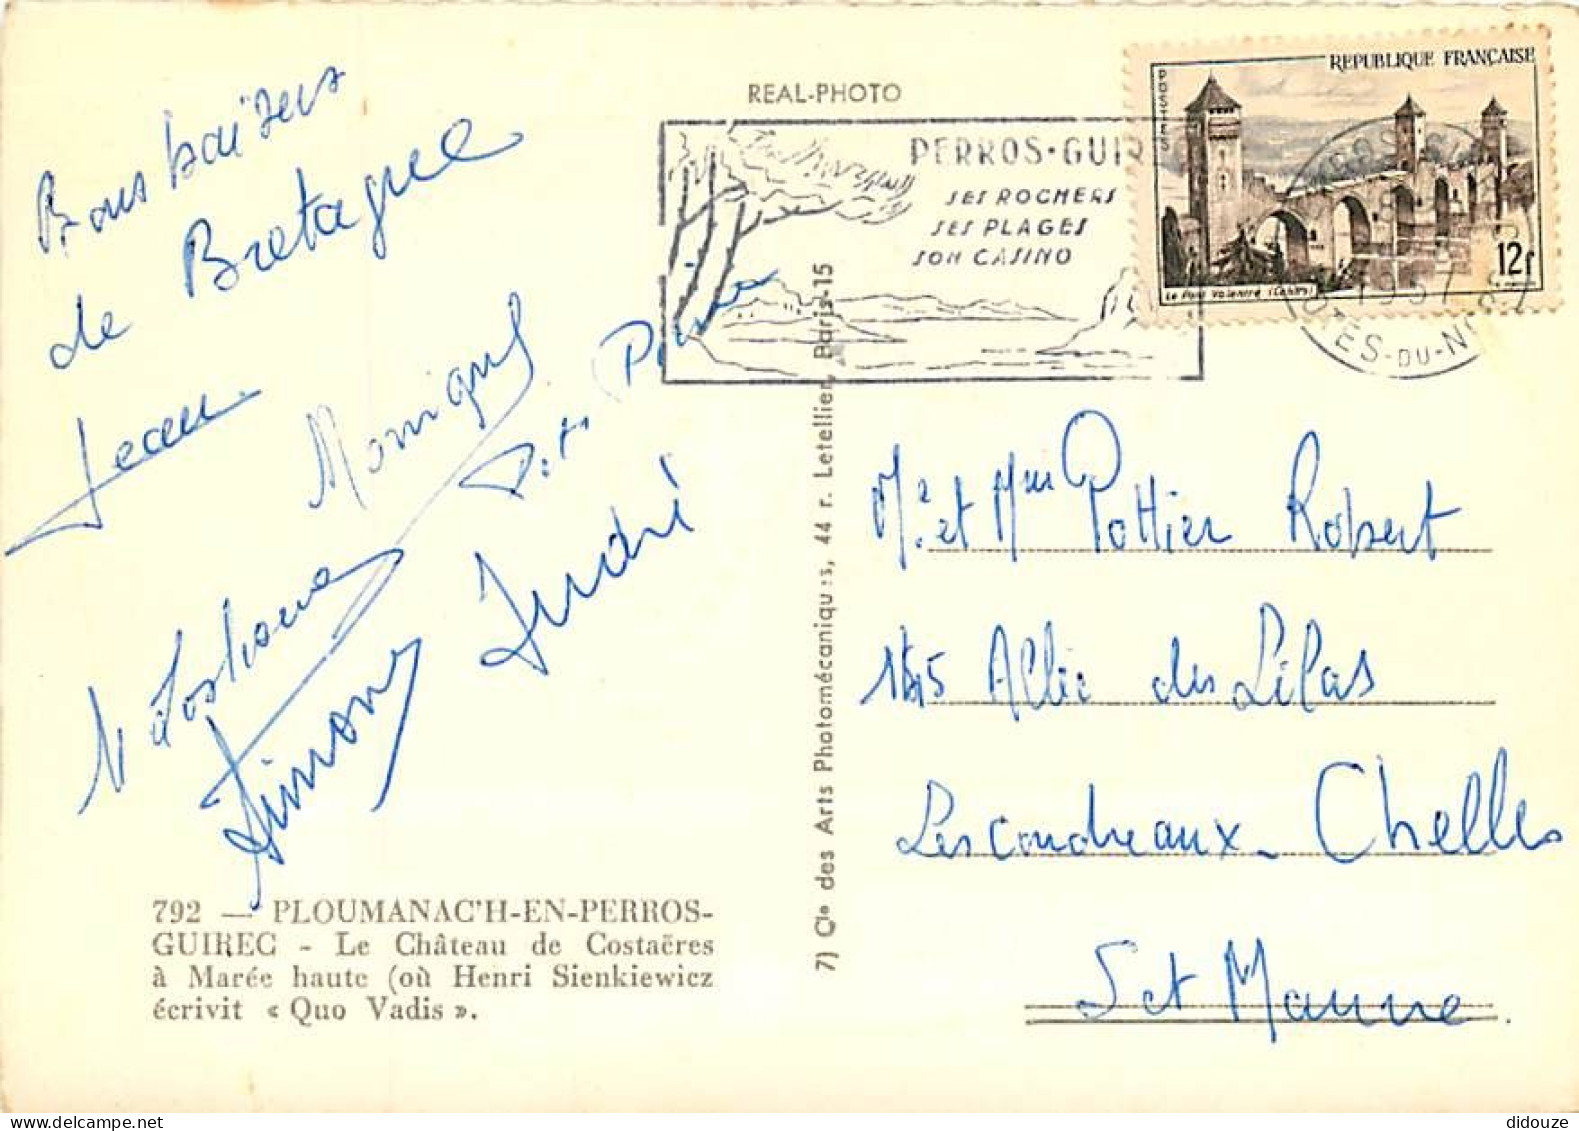 Bons baisers
de Bretagne
Jean
Monique
Simone
André
792 — PLOUMANAC'H-EN-PERROS-
GUIREC - Le Château de Costaëres
à Marée haute (où Henri Sienkiewicz
écrivit « Quo Vadis ».
REAL-PHOTO
7) Cie des Arts Photomécaniques, 44 r. Letellier, Paris-15
PERROS-GUIR
SES ROCHERS
SES PLAGES
SON CASINO
REPUBLIQUE FRANÇAISE
POSTES
12f
Le Pont Valentré (Cahors)
1957
COTES-DU-NORD
Mr et Mme Pottier Robert
Allée des Lilas
Les coudreaux - Chelles
S et Marne
didouze